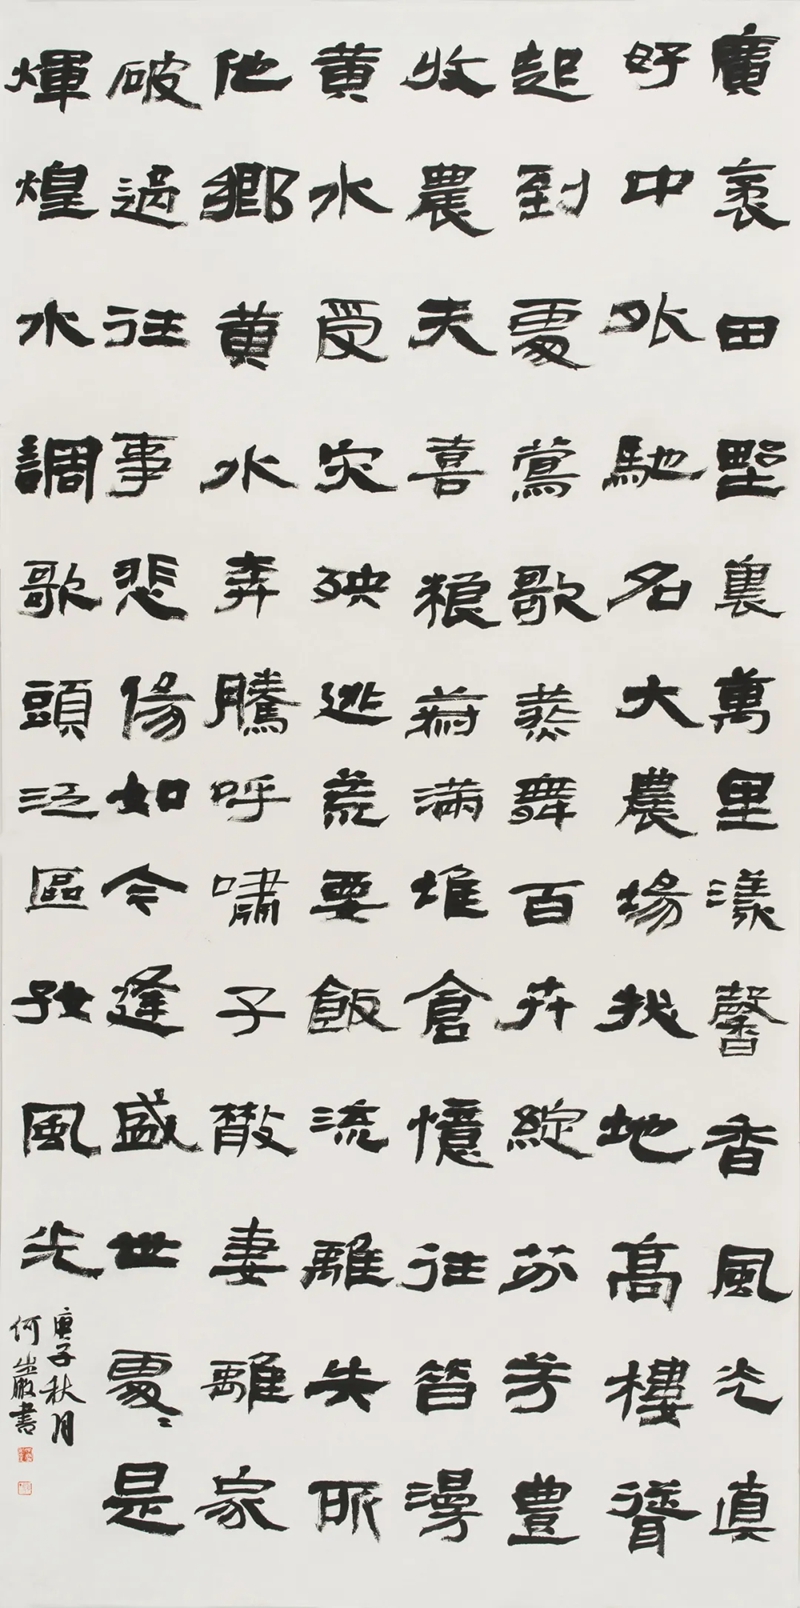 廣袤田野裏萬里漾馨香風光真
好中外馳名大農場拔地高樓聳
起到處鶯歌燕舞百卉綻芬芳豐
收農夫喜粮滿堆倉憶往昔漫
黃水受灾殃逃荒要飯流離失所
他鄉黃水奔騰呼嘯子散妻離家
破過往事悲傷如今逢盛世處〻是
煇煌水調歌頭泛區好風光
庚子秋月
何巖書